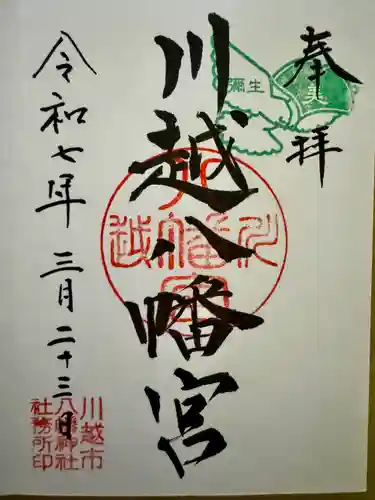 奉拝
彌生
川越八幡宮
令和七年三月二十三日
川越市
八幡神社
社務所印